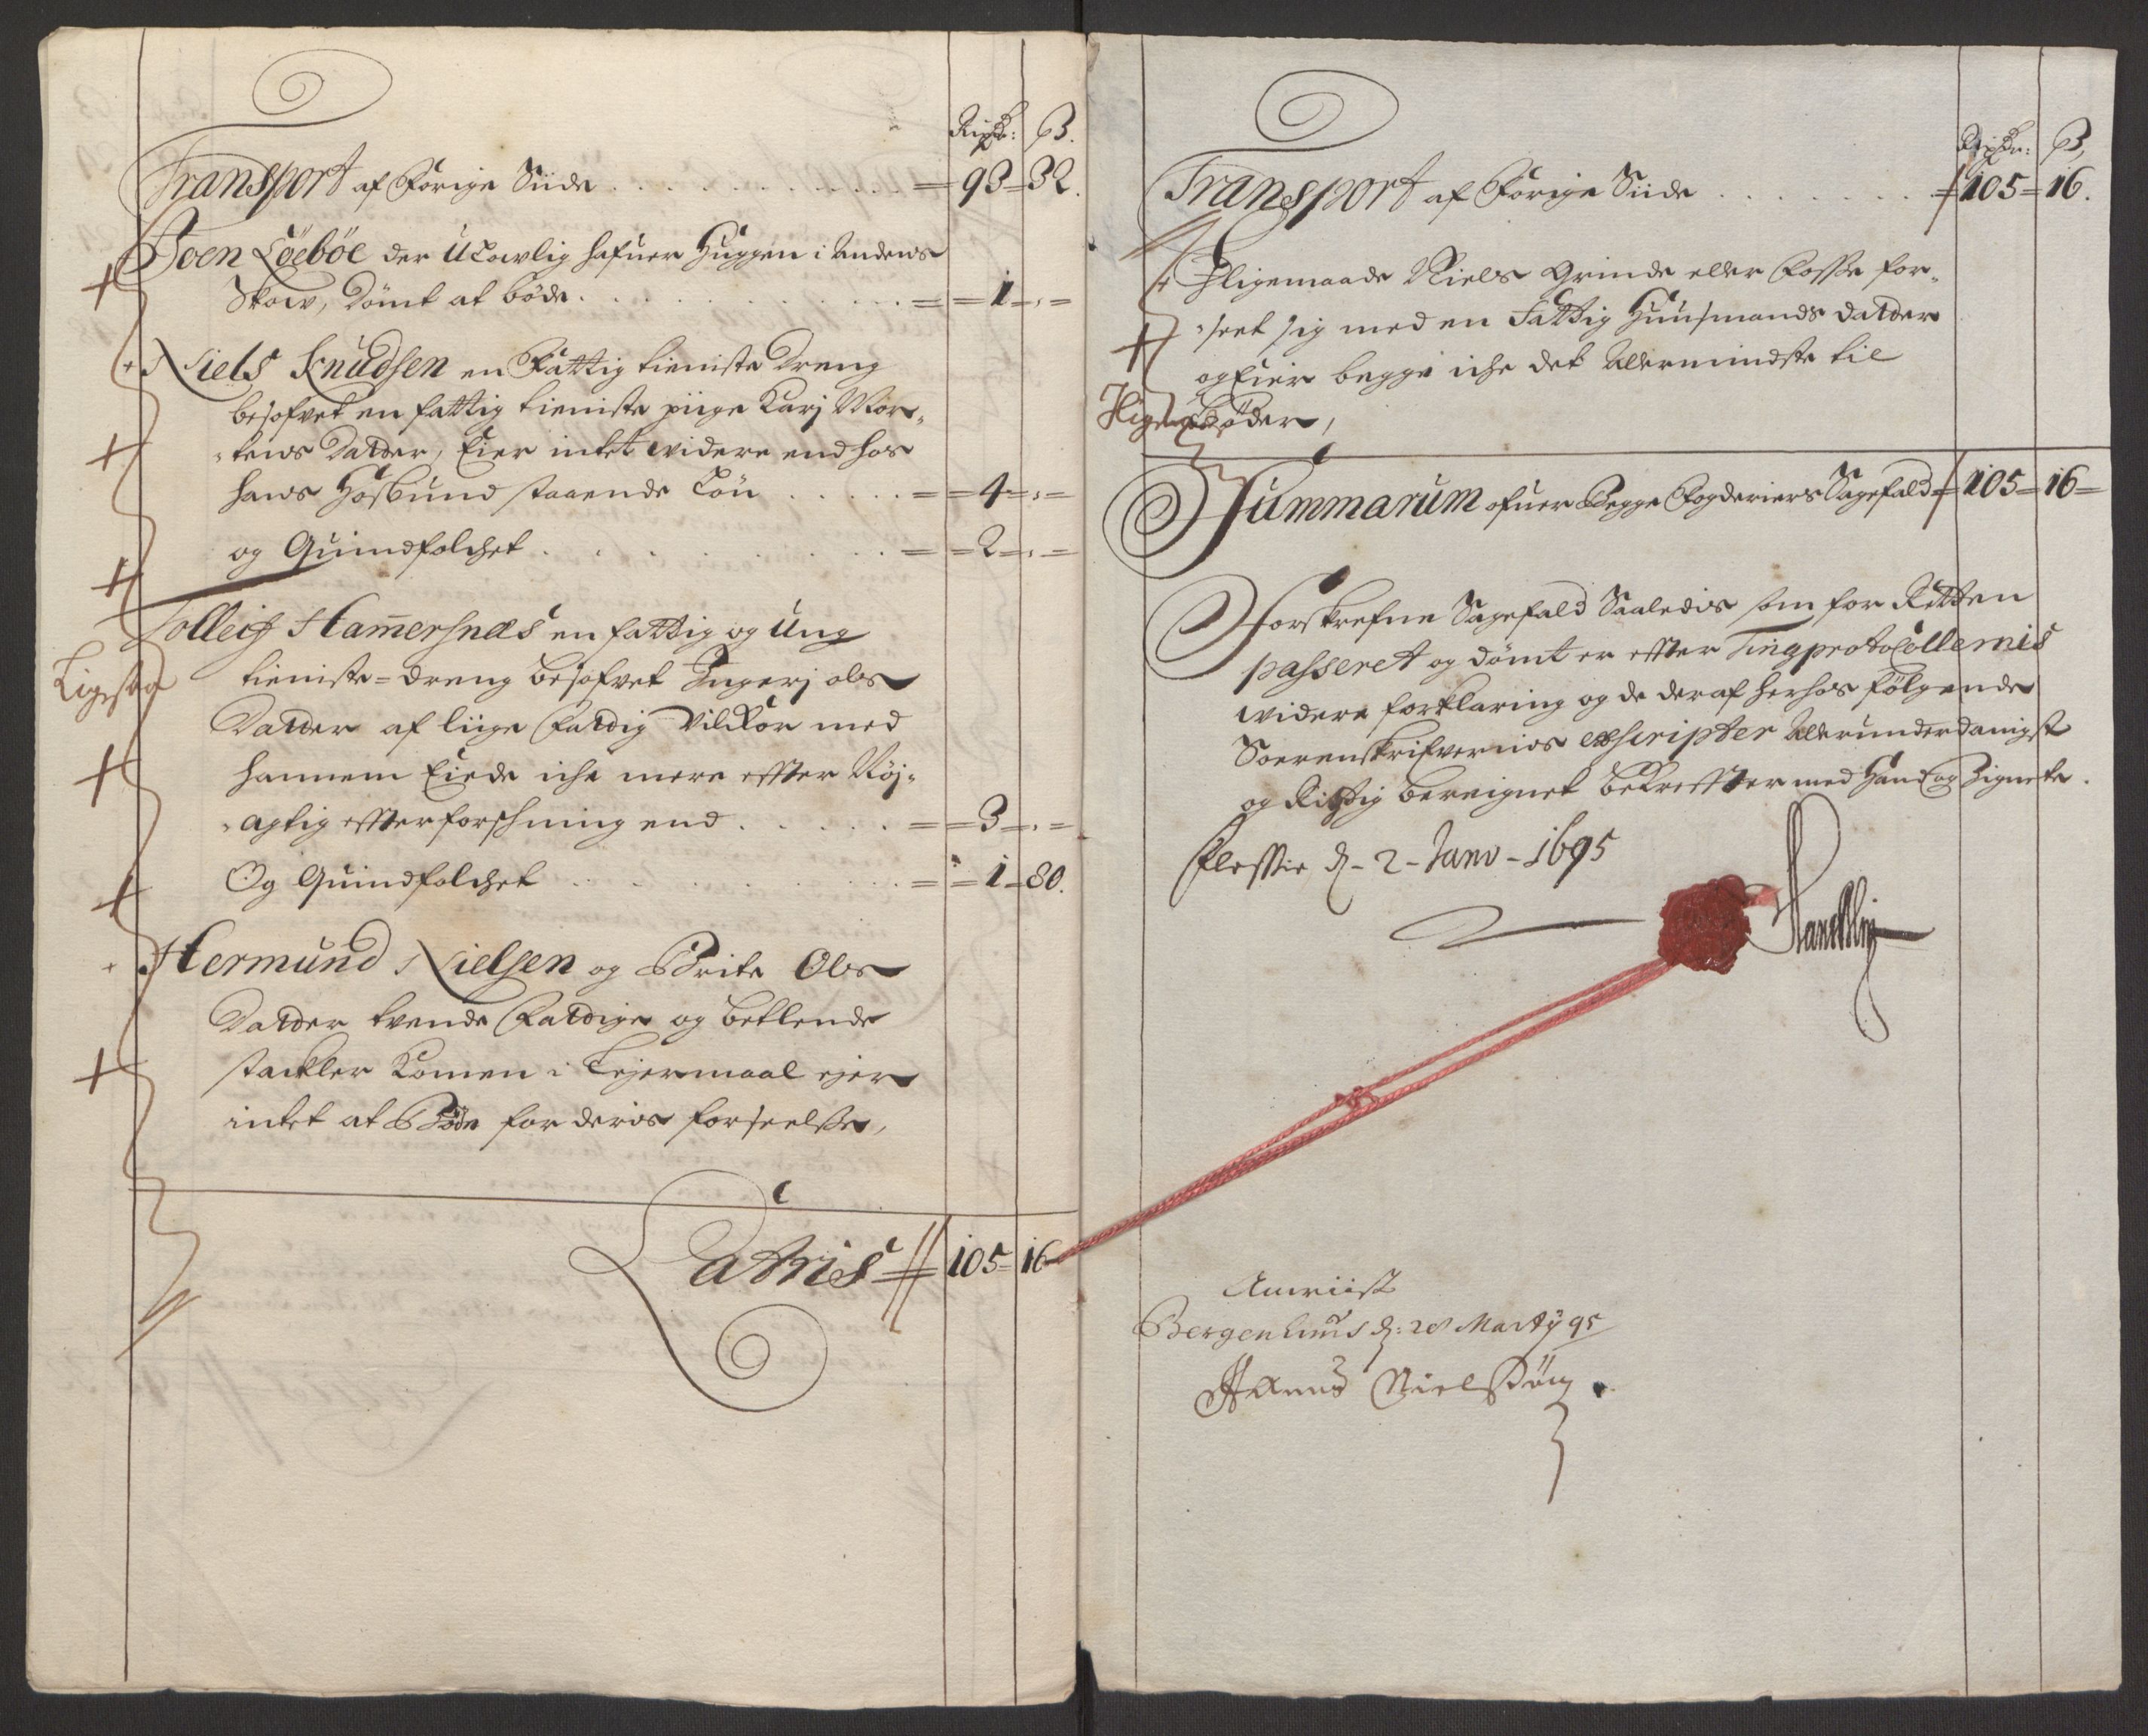 Rixdr: ß.
Transport af Forige Siide . . . = 93 = 32.
Joen Löeböe der Ulowlig hafuer Huggen i Andens
Skow, Dömt at böde . . . = 1 = . =
Niels Knudsen en Fattig tieniste Dreng
besofvet en fattig tieniste piige Karj Mor-
tens Datter, Eier intet widere end hos
hans Hosbund staaende Lön . . . = 4 = . =
og Quindfolchet . . . = 2 = . =
Tolleif Hamersnæs en fattig og Ung
Ligesaa
tieniste-Dreng besofvet Ingerj ols
Datter af liige fattig Vilkor med
hannem Eiede iche mere efter Nöj-
agtig efterforschning end . . . = 3 = . =
Og Quindfolchet . . . = 1 = 80.
Hermund Nielsen og Brite Ols
Datter tvende fattige og betlende
stackler Komen i Leyermaal ejer
intet at Böde for deris forseelse,
Latris = 105 = 16
Rixdr: ß,
Transport af Forige Siide . . . = 105 = 16.
Jligemaade Niels Grinde eller Fosse for-
seet sig med en Fattig Huusmands datter
og Eier begge iche det Allermindste til
Bøder,
Summarum ofuer Begge Fogderiers Sagefald = 105 = 16 =
Forskrefne Sagefald Saaledis som for Retten
passeret og dömt er efter Tingprotocollernis
widere forklaring og de deraf herhos fölgende
Sorenskrifvernis exscripter Allerunderdanigst
og Rigtig bereignet bekrefter med Haand og Zignete.
Flesche d. 2 Janv 1695
Bergenhuus d: 28 Martij 95
Hans Nielssön